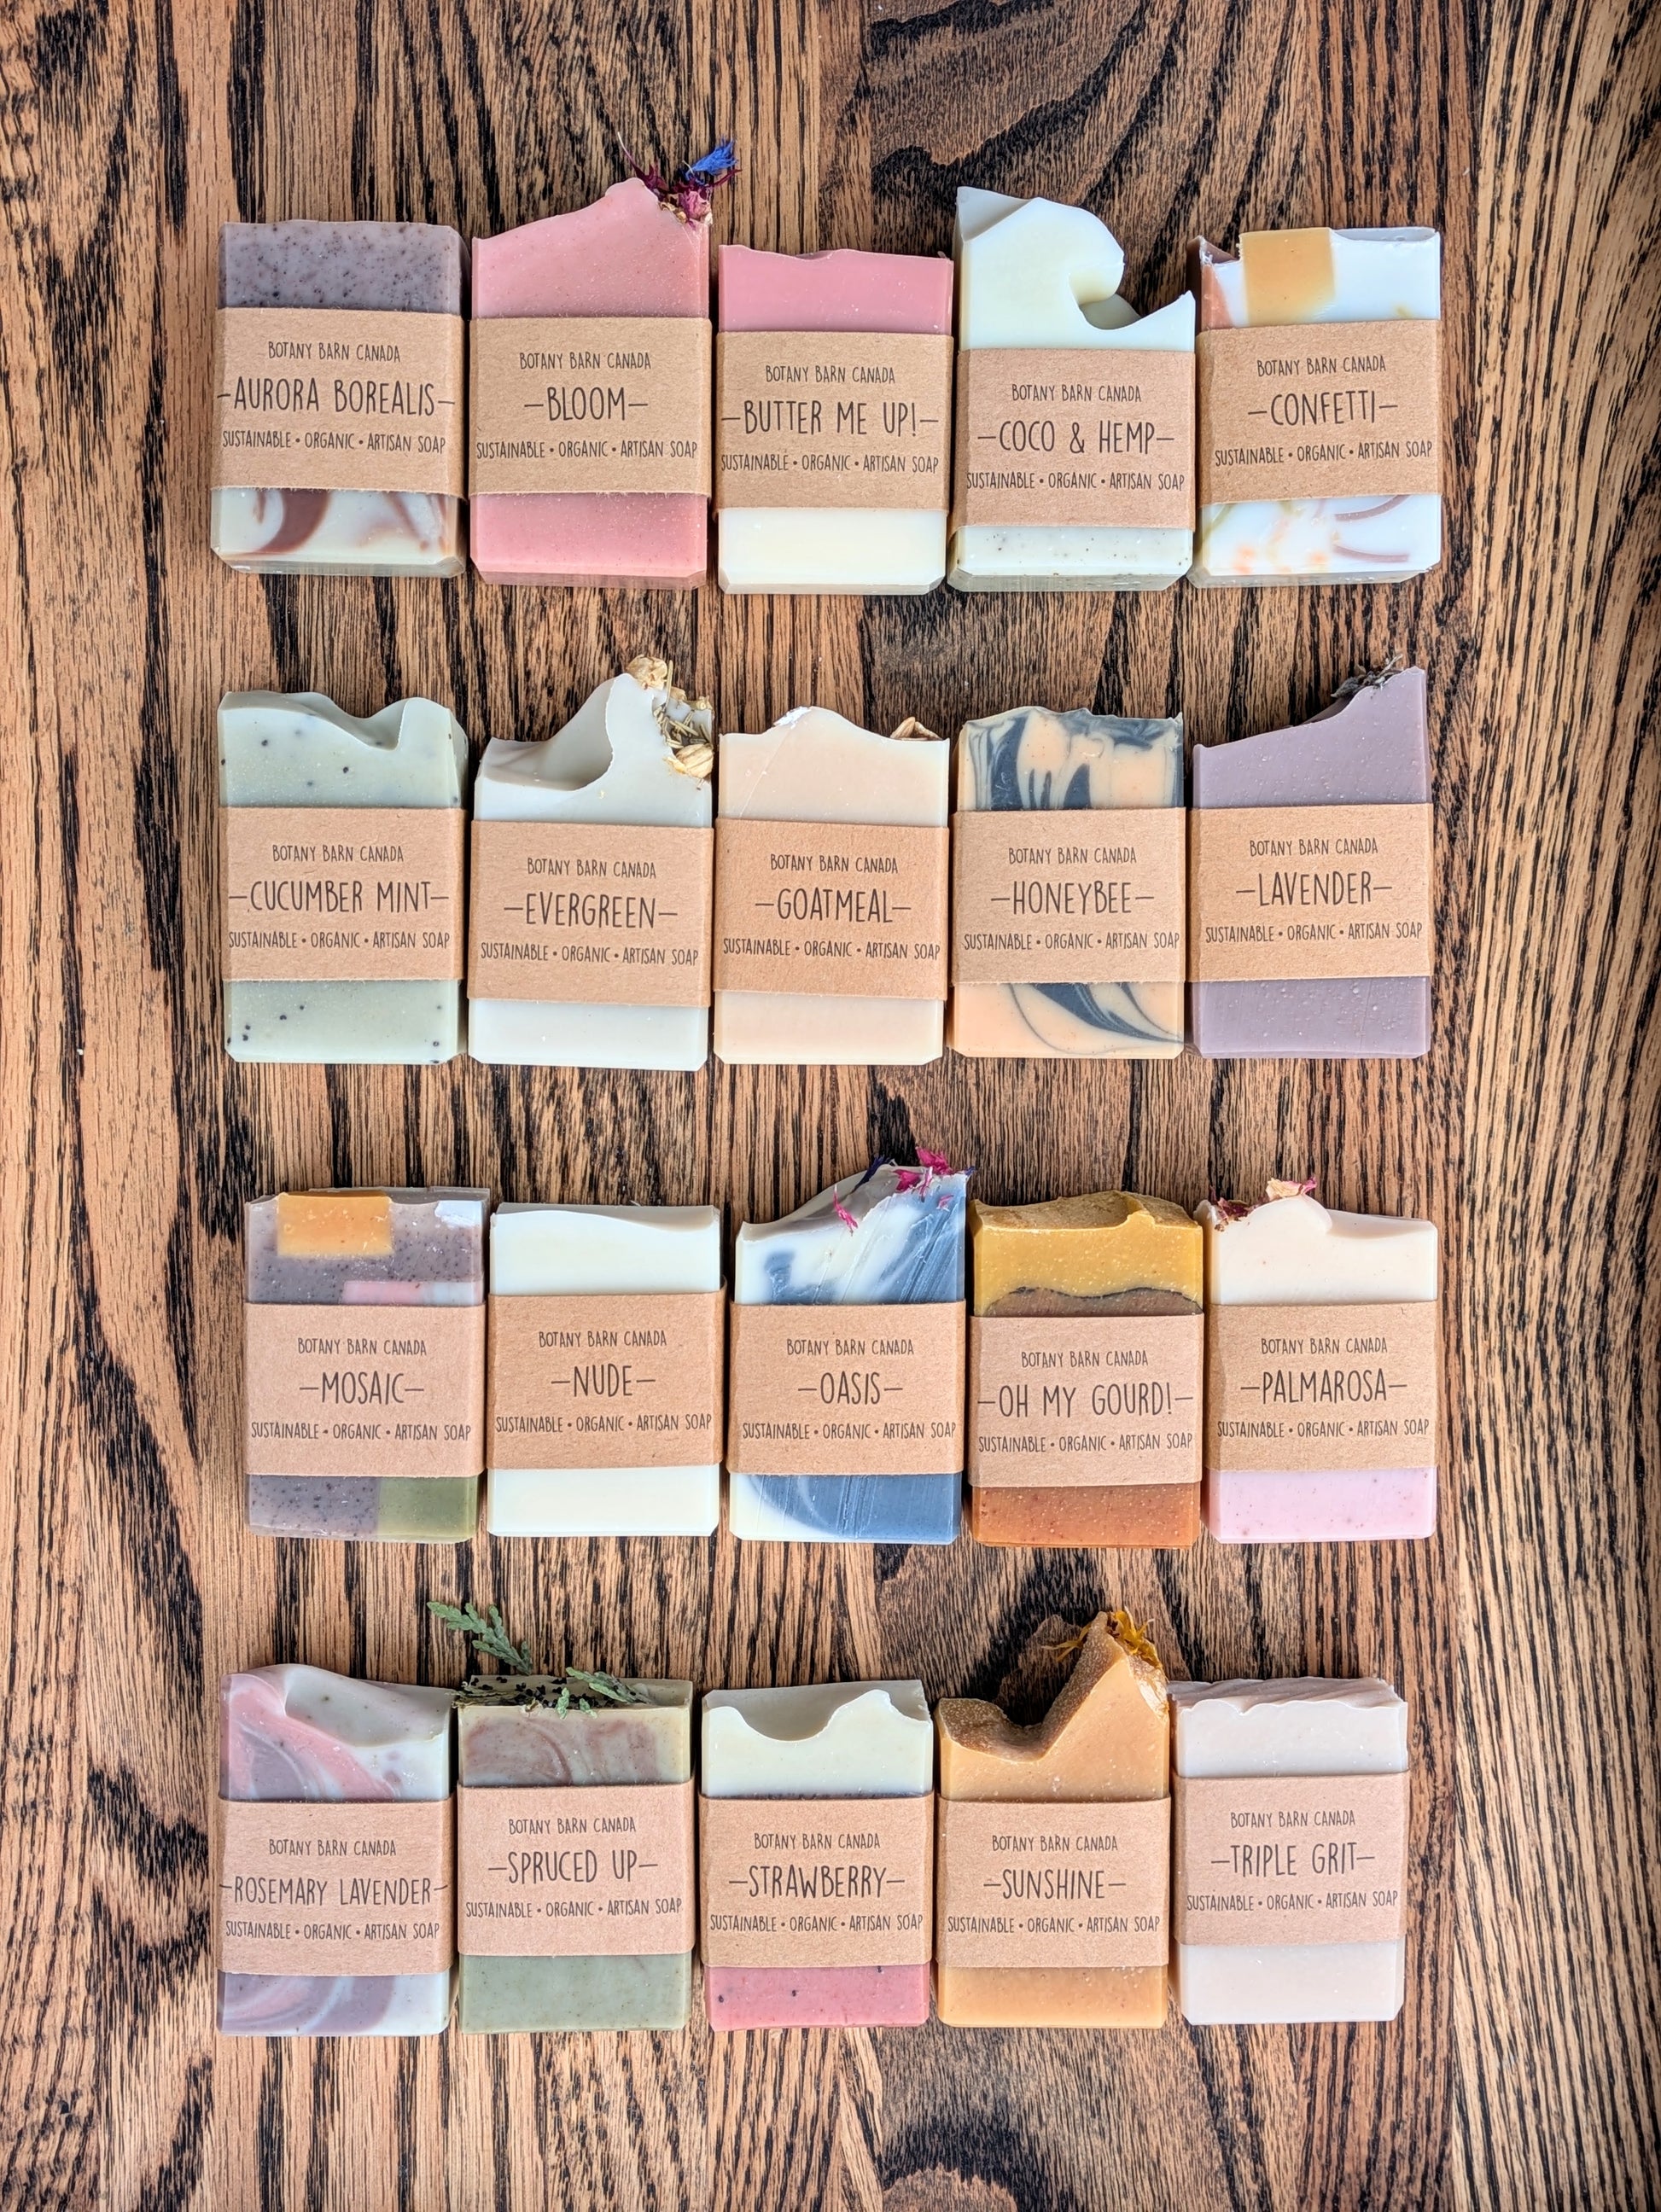 BOTANY BARN CANADA
-AURORA BOREALIS-
SUSTAINABLE • ORGANIC • ARTISAN SOAP
BOTANY BARN CANADA
-BLOOM-
SUSTAINABLE • ORGANIC • ARTISAN SOAP
BOTANY BARN CANADA
-BUTTER ME UP!-
SUSTAINABLE • ORGANIC • ARTISAN SOAP
BOTANY BARN CANADA
-COCO & HEMP-
SUSTAINABLE • ORGANIC • ARTISAN SOAP
BOTANY BARN CANADA
-CONFETTI-
SUSTAINABLE • ORGANIC • ARTISAN SOAP
BOTANY BARN CANADA
-CUCUMBER MINT-
SUSTAINABLE • ORGANIC • ARTISAN SOAP
BOTANY BARN CANADA
-EVERGREEN-
SUSTAINABLE • ORGANIC • ARTISAN SOAP
BOTANY BARN CANADA
-GOATMEAL-
SUSTAINABLE • ORGANIC • ARTISAN SOAP
BOTANY BARN CANADA
-HONEYBEE-
SUSTAINABLE • ORGANIC • ARTISAN SOAP
BOTANY BARN CANADA
-LAVENDER-
SUSTAINABLE • ORGANIC • ARTISAN SOAP
BOTANY BARN CANADA
-MOSAIC-
SUSTAINABLE • ORGANIC • ARTISAN SOAP
BOTANY BARN CANADA
-NUDE-
SUSTAINABLE • ORGANIC • ARTISAN SOAP
BOTANY BARN CANADA
-OASIS-
SUSTAINABLE • ORGANIC • ARTISAN SOAP
BOTANY BARN CANADA
-OH MY GOURD!-
SUSTAINABLE • ORGANIC • ARTISAN SOAP
BOTANY BARN CANADA
-PALMAROSA-
SUSTAINABLE • ORGANIC • ARTISAN SOAP
BOTANY BARN CANADA
-ROSEMARY LAVENDER-
SUSTAINABLE • ORGANIC • ARTISAN SOAP
BOTANY BARN CANADA
-SPRUCED UP-
SUSTAINABLE • ORGANIC • ARTISAN SOAP
BOTANY BARN CANADA
-STRAWBERRY-
SUSTAINABLE • ORGANIC • ARTISAN SOAP
BOTANY BARN CANADA
-SUNSHINE-
SUSTAINABLE • ORGANIC • ARTISAN SOAP
BOTANY BARN CANADA
-TRIPLE GRIT-
SUSTAINABLE • ORGANIC • ARTISAN SOAP